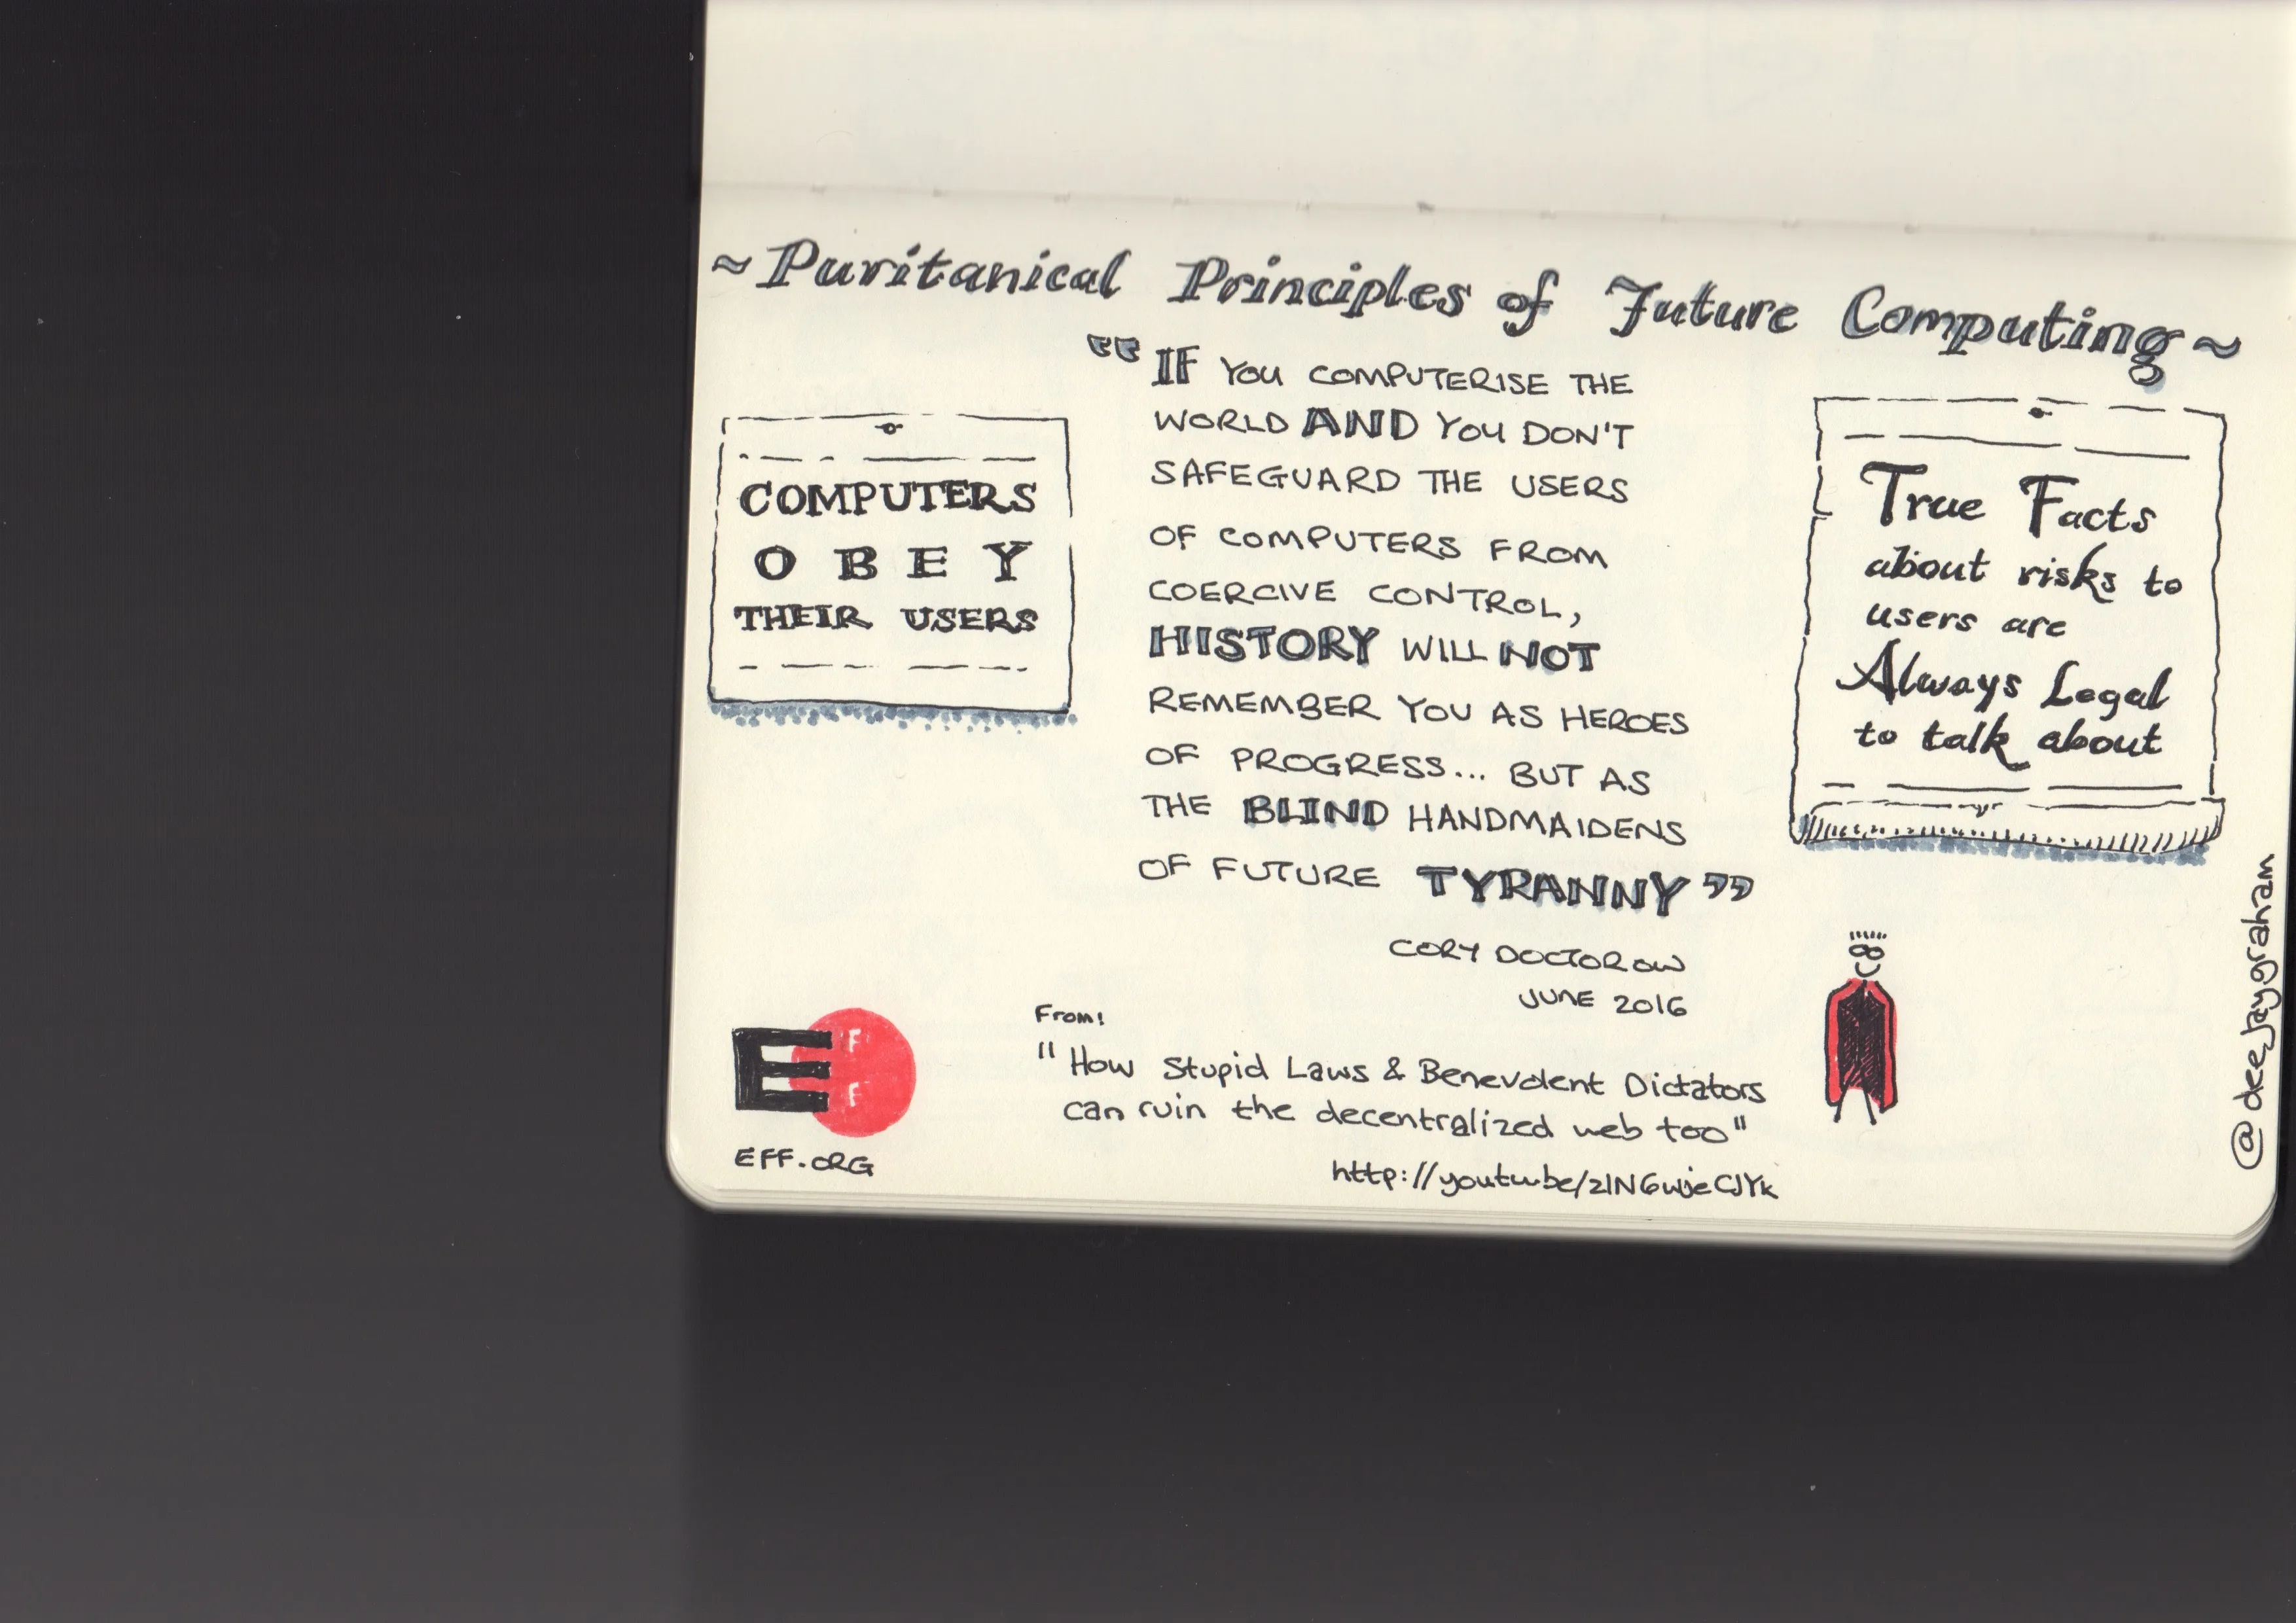 ~Puritanical Principles of Future Computing~
COMPUTERS
OBEY
THEIR USERS
"IF YOU COMPUTERISE THE
WORLD AND YOU DON'T
SAFEGUARD THE USERS
OF COMPUTERS FROM
COERCIVE CONTROL,
HISTORY WILL NOT
REMEMBER YOU AS HEROES
OF PROGRESS... BUT AS
THE BLIND HANDMAIDENS
OF FUTURE TYRANNY"
CORY DOCTOROW
JUNE 2016
True Facts
about risks to
users are
Always Legal
to talk about
E
F
F
EFF.ORG
From:
"How Stupid Laws & Benevolent Dictators
can ruin the decentralized web too"
@deejaygraham